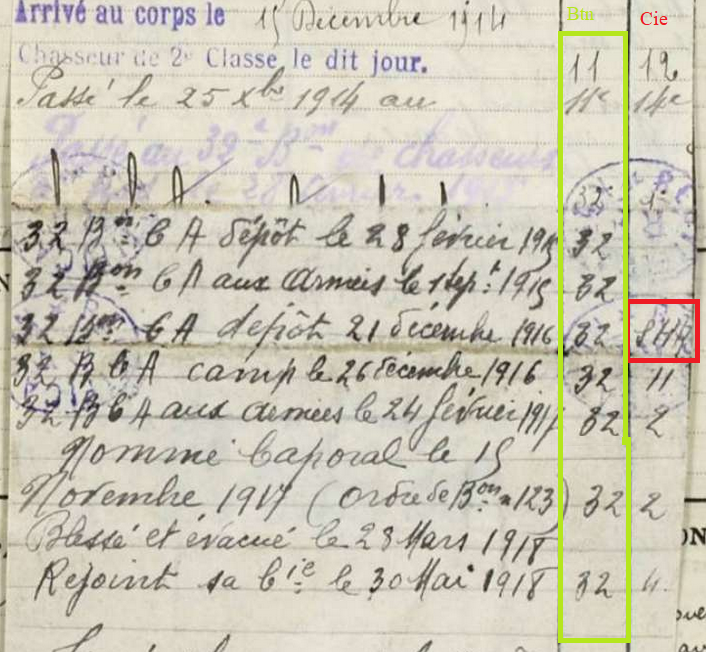 Btn Cie
Arrivé au corps le 15 Décembre 1914
Chasseur de 2e Classe, le dit jour. 11 12
Passé le 25 Xbre 1914 au 11e 14e
Passé au 32e Bon de chasseurs
le 28 février 1915 32
32 Bon C A dépôt le 28 février 1915 32
32 Bon C A aux armées le 1 Sept. 1915 32
32 Bon C A dépôt 21 décembre 1916 32
32 B C A camp le 26 décembre 1916 32 11
32 B C A aux armées le 24 février 1917 32 2
Nommé Caporal le 15
Novembre 1917 (Ordre de Bon n 123) 32 2
Blessé et évacué le 28 Mars 1918
Rejoint sa Cie le 30 Mai 1918 32 4.